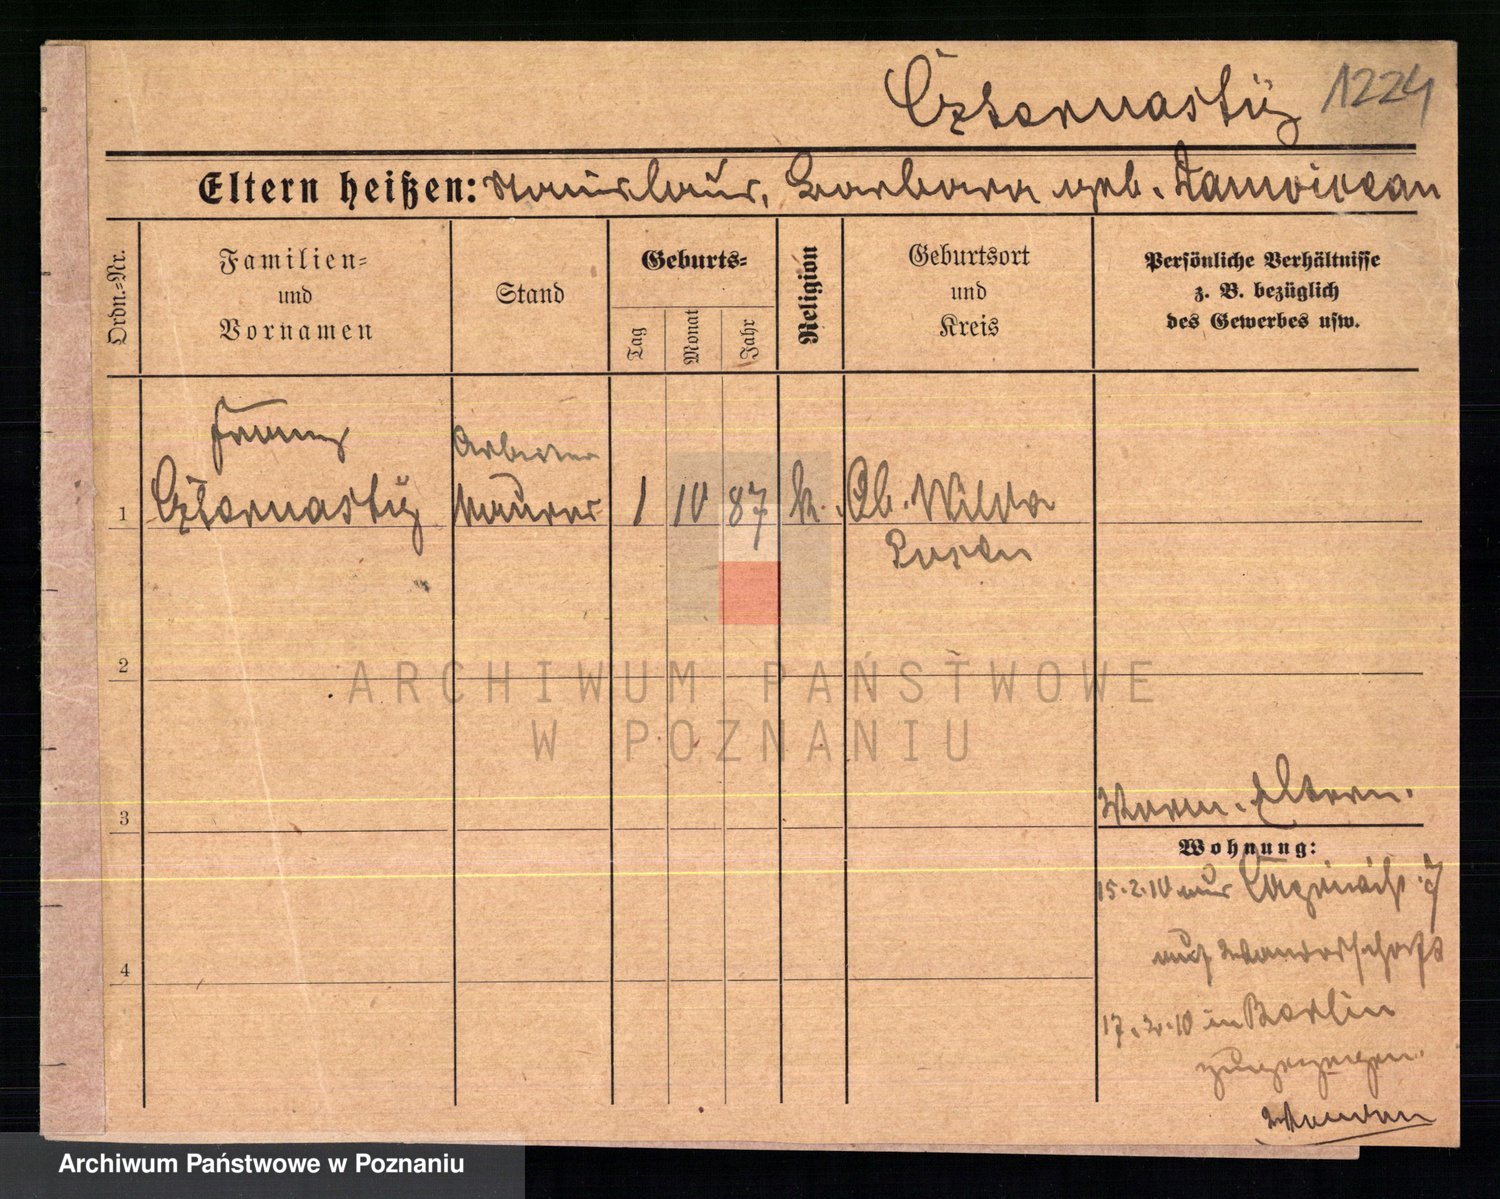 Czternasty 1224
Eltern heißen: Stanislaus, Barbara geb.
Ordn.-Nr.
Familien-
und
Vornamen
Stand
Geburts-
Tag
Monat
Jahr
Religion
Geburtsort
und
Kreis
Persönliche Verhältnisse
z. B. bezüglich
des Gewerbes usw.
Franz
Arbeiter
1 Czternasty Maurer 1 10 87 k. Ob. Wilda
Posen
2
3
Eltern.
Wohnung:
15.2.10 aus
auf Wanderschaft
4
17.2.10 in Berlin
zugezogen.
ARCHIWUM PAŃSTWOWE
W POZNANIU
Archiwum Państwowe w Poznaniu